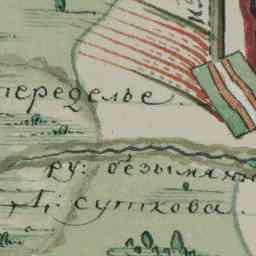 переделье.
ру: безымянн
Д: суткова.